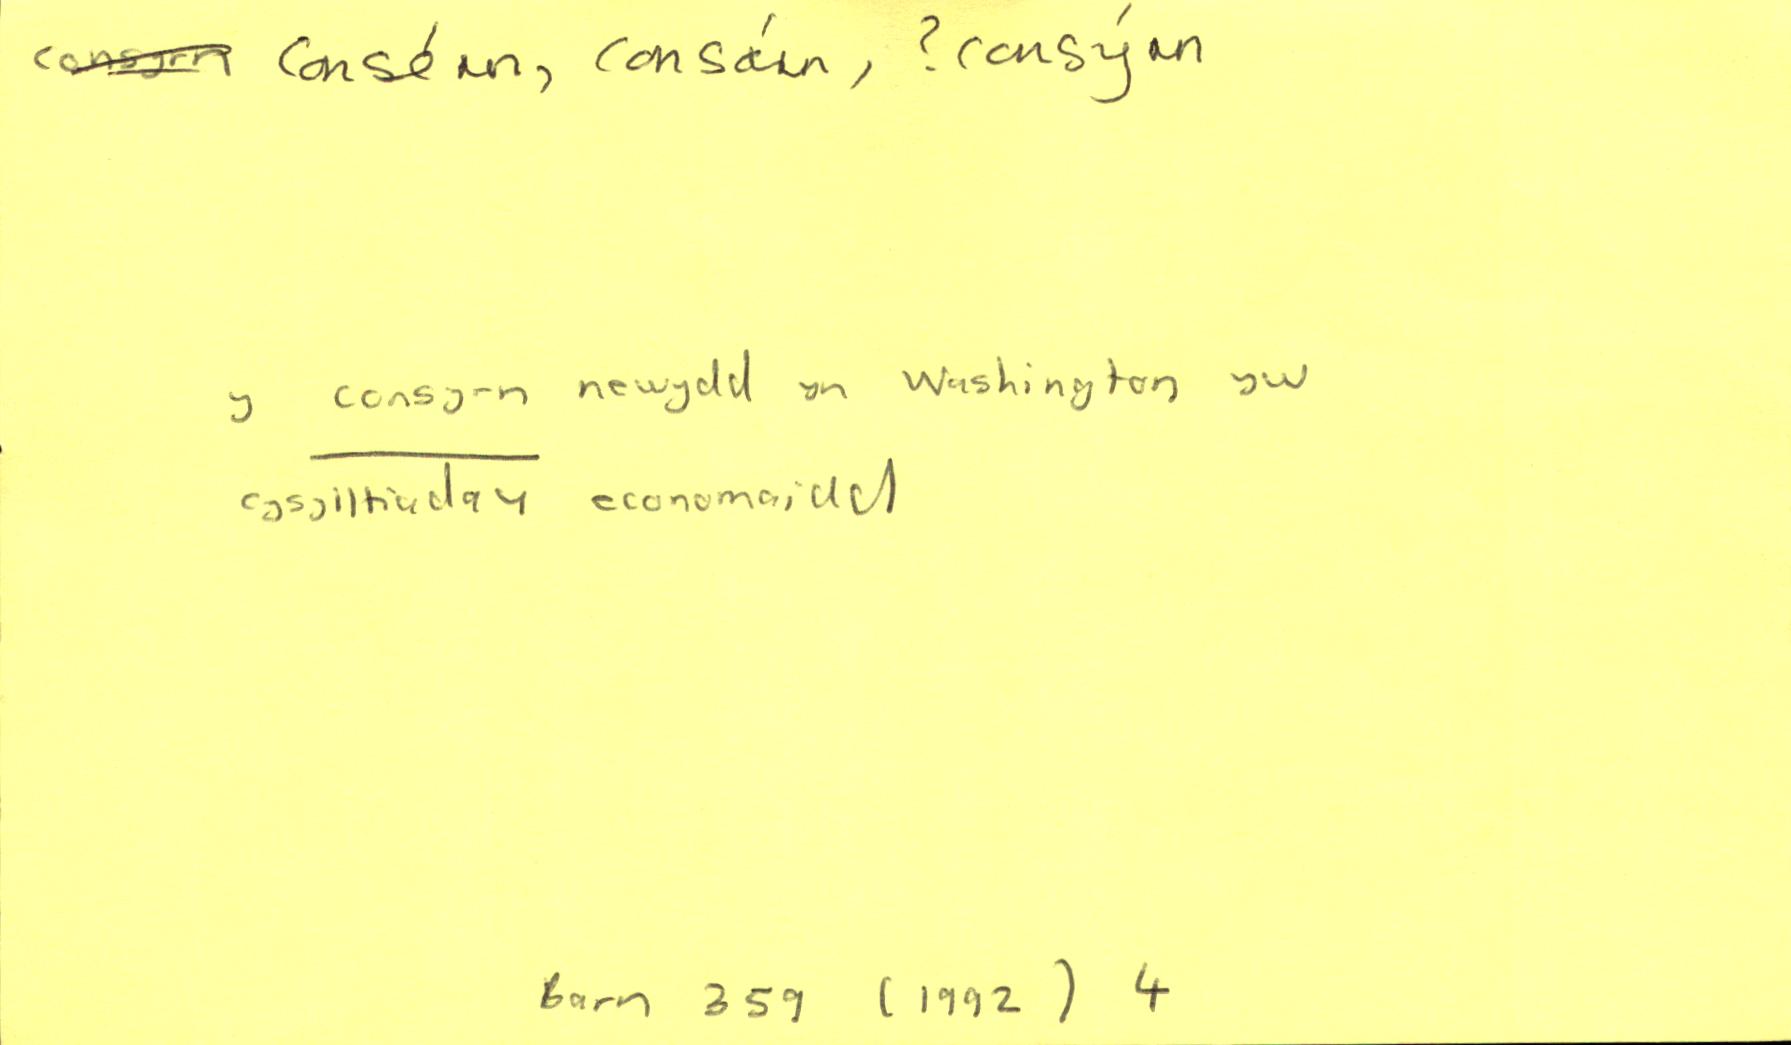 consyrn consérn, consárn, ?consýrn
y consyrn newydd yn Washington yw
cysylltiadau economaidd
Barn 359 (1992) 4